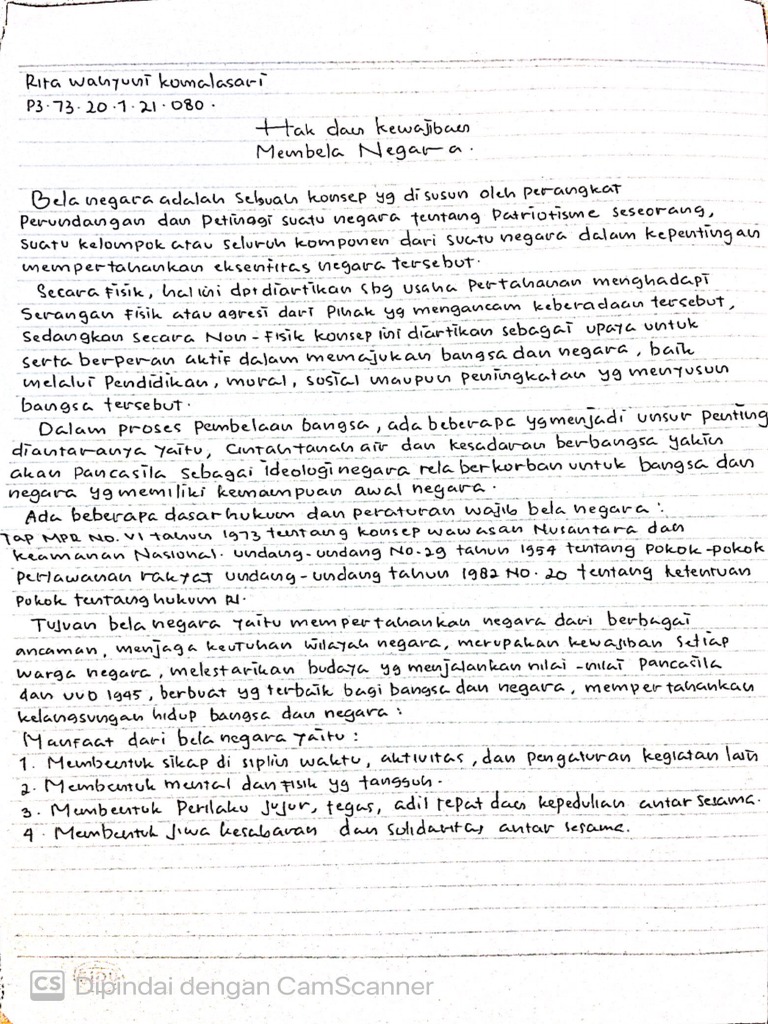 Rita Wahyuni Komalasari
P3.73.20.1.21.080.
Hak dan Kewajiban
Membela Negara.
Bela negara adalah sebuah konsep yg disusun oleh perangkat
Perundangan dan Petinggi suatu negara tentang Patriotisme seseorang,
suatu kelompok atau seluruh komponen dari suatu negara dalam kepentingan
mempertahankan eksentitas negara tersebut.
Secara Fisik, hal ini dpt diartikan sbg usaha Pertahanan menghadapi
Serangan Fisik atau agresi dari Pihak yg mengancam keberadaan tersebut,
Sedangkan secara Non-Fisik konsep ini diartikan sebagai upaya untuk
serta berperan aktif dalam memajukan bangsa dan negara, baik
melalui Pendidikan, moral, sosial maupun peningkatan yg menyusun
bangsa tersebut.
Dalam proses Pembelaan bangsa, ada beberapa yg menjadi unsur penting
diantaranya yaitu, Cintah tanah air dan kesadaran berbangsa yakin
akan Pancasila sebagai ideologi negara rela berkorban untuk bangsa dan
negara yg memiliki kemampuan awal negara.
Ada beberapa dasar hukum dan peraturan wajib bela negara :
Tap MPR No. VI tahun 1973 tentang konsep wawasan Nusantara dan
Keamanan Nasional. undang-undang No.29 tahun 1954 tentang Pokok-pokok
Perlawanan rakyat undang-undang tahun 1982 No. 20 tentang ketentuan
Pokok tentang hukum RI.
Tujuan bela negara yaitu mempertahankan negara dari berbagai
ancaman, menjaga keutuhan wilayah negara, merupakan kewajiban setiap
warga negara, melestarikan budaya yg menjalankan nilai-nilai Pancasila
dan UUD 1945, berbuat yg terbaik bagi bangsa dan negara, mempertahankan
kelangsungan hidup bangsa dan negara :
Manfaat dari bela negara yaitu :
1. Membentuk sikap di siplin waktu, aktivitas, dan pengaturan kegiatan lain
2. Membentuk mental dan fisik yg tangguh.
3. Membentuk Perilaku jujur, tegas, adil tepat dan kepedulian antar sesama.
4. Membentuk jiwa kesabaran dan solidaritas antar sesama.
CS Dipindai dengan CamScanner